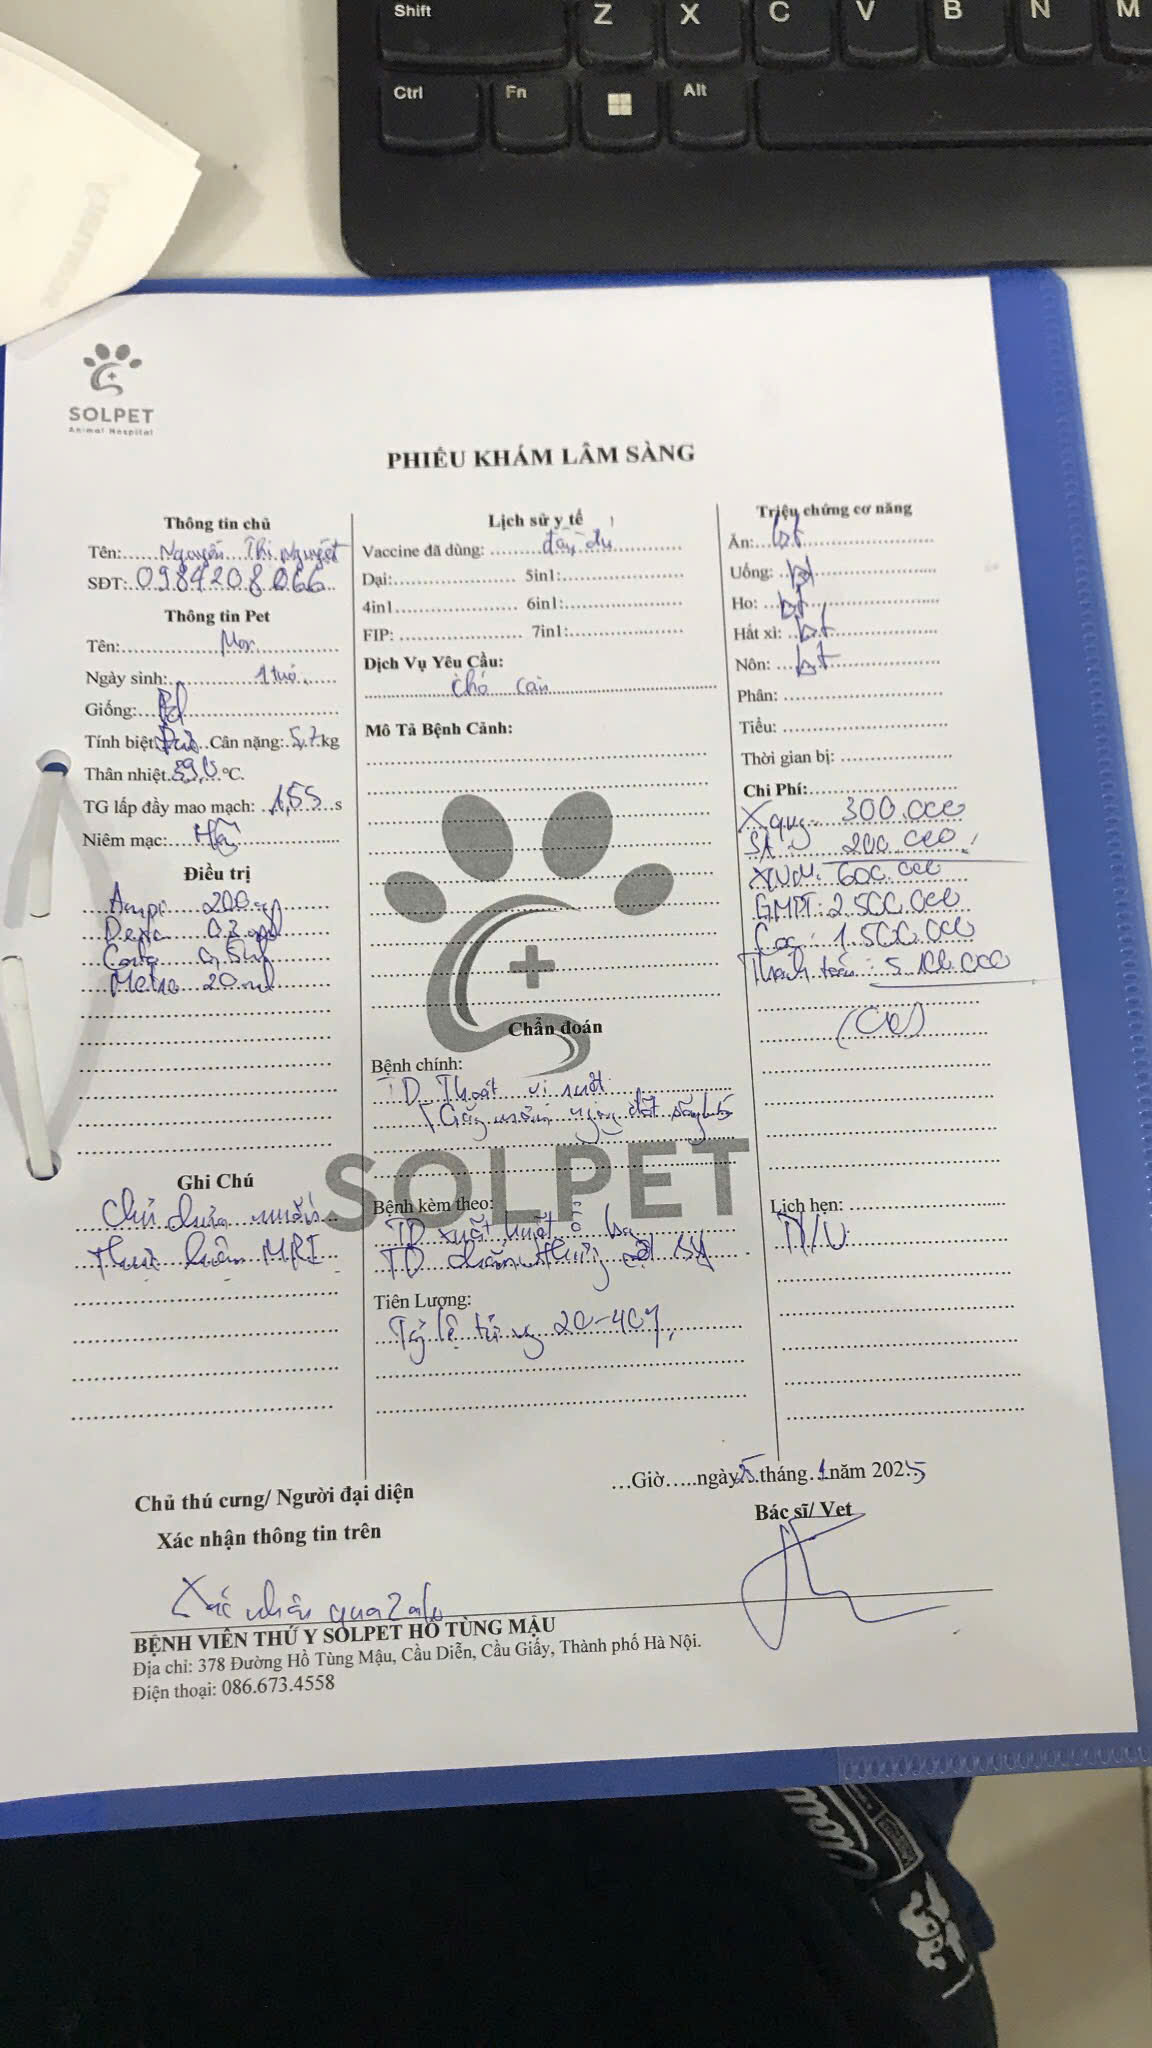 Shift
Z
X
C
V
B
N
M
Ctrl
Fn
Alt
SOLPET
Animal Hospital
PHIẾU KHÁM LÂM SÀNG
Thông tin chủ
Tên: Nguyễn Thị Nguyệt
SĐT: 0984208066
Thông tin Pet
Tên: Mon
Ngày sinh: 1 tuổi
Giống:
Tính biệt: Đực Cân nặng: 5,7 kg
Thân nhiệt 39,0 °C.
TG lấp đầy mao mạch: 1,5s s
Niêm mạc:
Điều trị
Ampi 200
Dexa 0,3
0,5ml
Metro 20 ml
Ghi Chú
Chủ chưa muốn
thực hiện MRI
Lịch sử y tế
Vaccine đã dùng: đầy đủ
Dại: 5in1:
4in1 6in1:
FIP: 7in1:
Dịch Vụ Yêu Cầu:
chó cắn
Mô Tả Bệnh Cảnh:
Chẩn đoán
Bệnh chính:
TD Thoát vị
Bệnh kèm theo:
TD xuất huyết ổ bụng
TD chấn thương cột sống
Tiên Lượng:
Tỷ lệ tử vg 20-40%
Triệu chứng cơ năng
Ăn: bt
Uống: bt
Ho: bt
Hắt xì: bt
Nôn: bt
Phân:
Tiểu:
Thời gian bị:
Chi Phí:
X quang 300.000
SA 200.000
XNM: 600.000
GMPT: 2.500.000
Cọc: 1.500.000
Thanh toán: 5.100.000
(CK)
Lịch hẹn:
N/V
Giờ ngày 25 tháng 1 năm 2025
Chủ thú cưng/ Người đại diện
Xác nhận thông tin trên
Bác sĩ/ Vet
Xác nhận qua Zalo
BỆNH VIỆN THÚ Y SOLPET HỒ TÙNG MẬU
Địa chỉ: 378 Đường Hồ Tùng Mậu, Cầu Diễn, Cầu Giấy, Thành phố Hà Nội.
Điện thoại: 086.673.4558
SOLPET